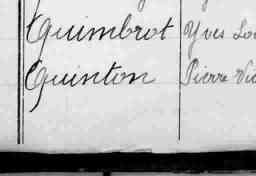 Quimbrot Yves
Quinton Pierre